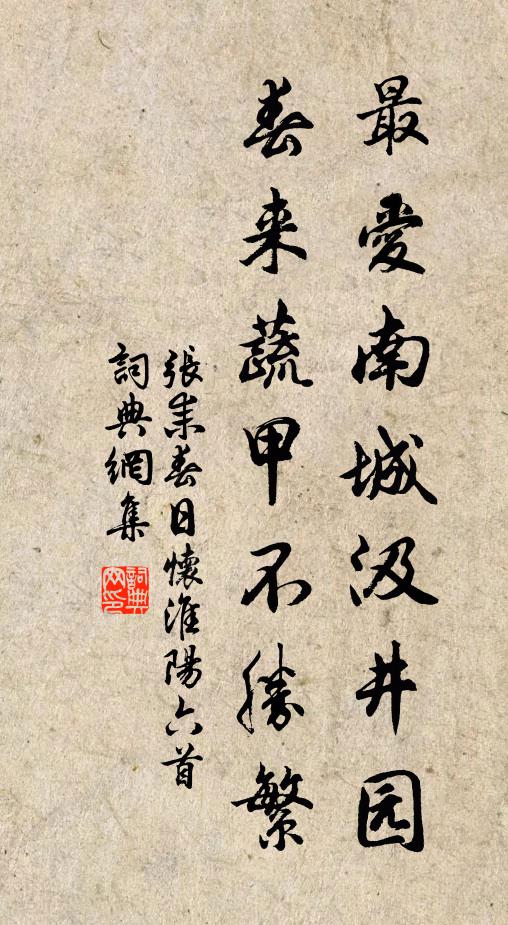 最愛南城汲井园
春来蔬甲不勝繁
張耒春日懷淮陽六首
詞典網集
詞典网印